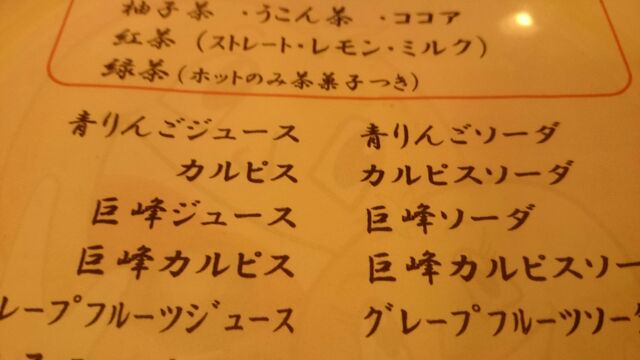 柚子茶 ・うこん茶 ・ココア
紅茶 (ストレート・レモン・ミルク)
緑茶 (ホットのみ茶菓子つき)
青りんごジュース 青りんごソーダ
カルピス カルピスソーダ
巨峰ジュース 巨峰ソーダ
巨峰カルピス 巨峰カルピスソー
レープフルーツジュース グレープフルーツソー